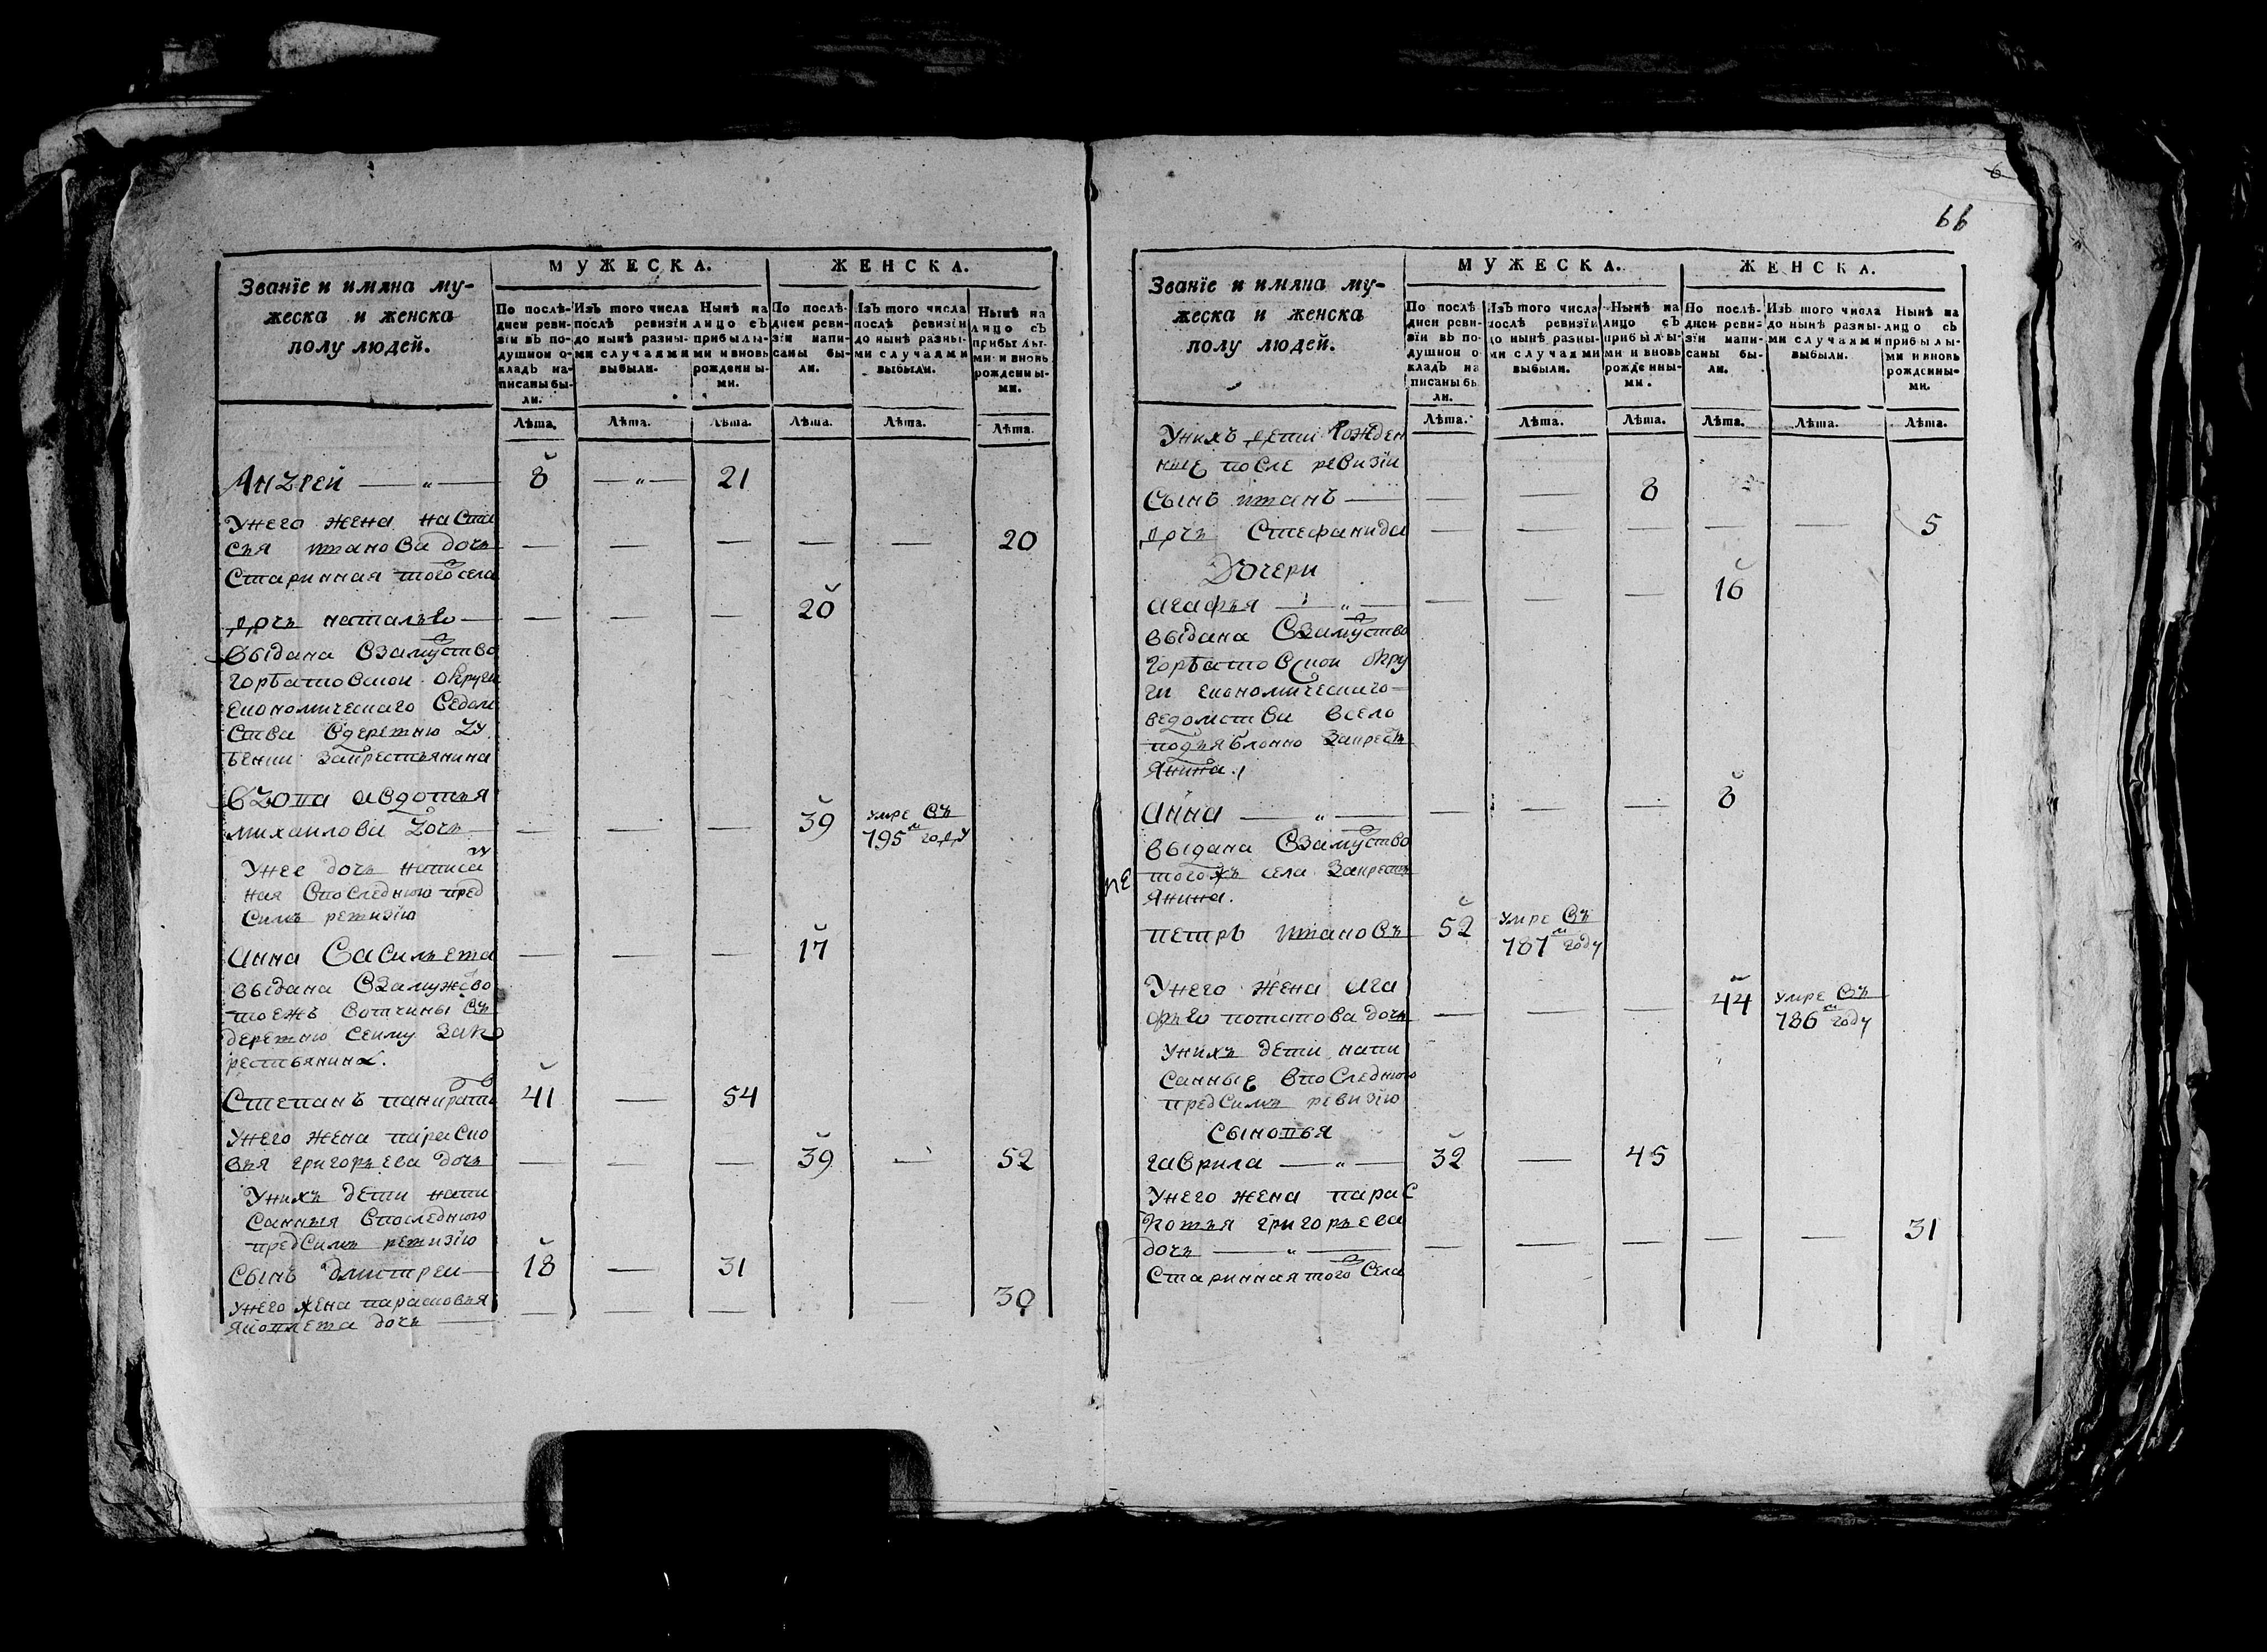 6
66
МУЖЕСКА. ЖЕНСКА.
Званїе и имяна му-
жеска и женска
полу людей.
По послѣ-
дней реви-
зїи въ по-
душной о-
кладъ на-
писаны бы-
ли.
Изъ того числа
послѣ ревизїи
до нынѣ разны-
ми случаями
выбыли.
Нынѣ на
лицо съ
прибылы-
ми и вновь
рожденны-
ми.
По послѣ-
дней реви-
зїи напи-
саны бы-
ли.
Изъ того числа
послѣ ревизїи
до нынѣ разны-
ми случаями
выбыли.
Нынѣ на
лицо съ
прибылы-
ми и вновь
рожденны-
ми.
Лѣта. Лѣта. Лѣта. Лѣта. Лѣта. Лѣта.
Андрей — „ — 8 — „ — 21
Унего жена наста
сья иванова дочь — — — — — 20
Старинная того села
дочь наталья — — — — 20
выдана взамуство
горбатовской округи
економическаго ведом
ства вдеревню
закрестьянина
вдова авдотья
михаилова дочь — — — 39 умре въ
795м году
Унее дочь написа
ная впоследнюю пред
симъ ревизїю
анна васильева — — — 17
выдана взамужство
тоежъ вотчины въ
деревню сейму зак
рестьянина.
Степанъ панкратов 41 — 54
Унего жена параско
вья григорьева дочь — — — 39 — 52
Унихъ дети напи
санныя впоследнюю
предсимъ ревизїю
сынъ дмитрей — 18 — 31
унего жена парасковья — — — — 30
яковлева дочь —
МУЖЕСКА. ЖЕНСКА.
Званїе и имяна му-
жеска и женска
полу людей.
По послѣ-
дней реви-
зїи въ по-
душной о-
кладъ на
писаны бы
ли.
Изъ того числа
послѣ ревизїи
до нынѣ разны-
ми случаями
выбыли.
Нынѣ на
лицо съ
прибылы-
ми и вновь
рожденны-
ми.
По послѣ-
дней реви-
зїи напи-
саны бы-
ли.
Изъ того числа
до нынѣ разны-
ми случаями
выбыли.
Нынѣ на
лицо съ
прибылы-
ми и вновь
рожденны-
ми.
Лѣта. Лѣта. Лѣта. Лѣта. Лѣта. Лѣта.
Унихъ дети рожден
ные после ревизїи
сынъ иванъ — — — 8
дочь Стефанида — — — — — 5
Дочери
агафья — „ — — — — 16
выдана взамуство
горбатовской окру
ги економическаго
ведомства всело
подъяблонно закресть
янина.
анна — „ — — — — 8
выдана взамуство
тогожъ села закресть
янина.
петръ ивановъ 52 умре въ
787м году
Унего жена ага
фья потапова дочь — — — 44 умре въ
786м году
Унихъ дети напи
санные впоследнюю
предсимъ ревизїю
сыновья
гаврила — „ — 32 — 45
Унего жена парас
ковья григорьева
дочь — „ — — — — — — 31
Старинная того села